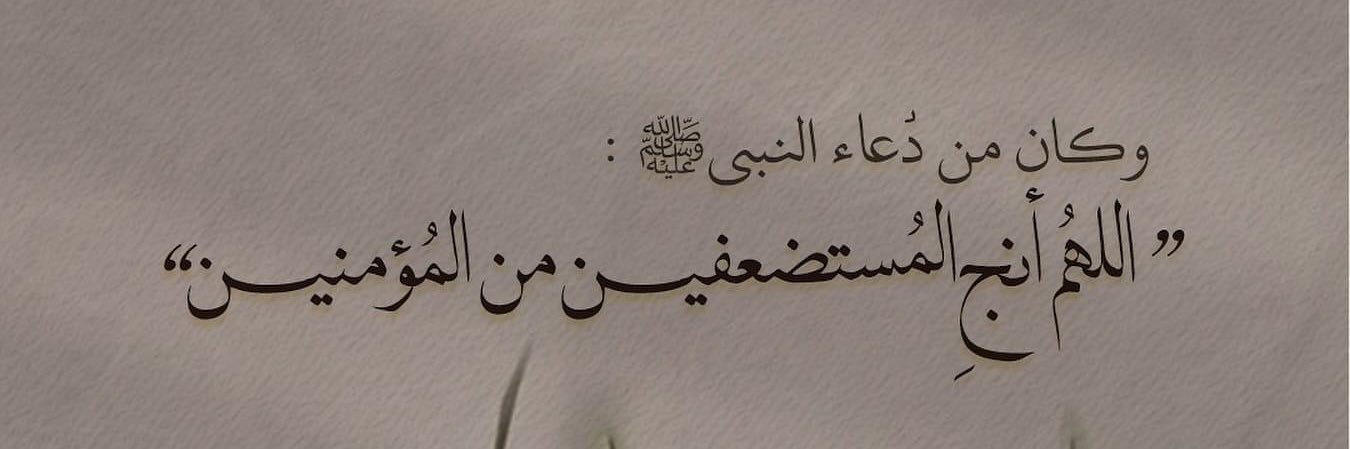 وكان من دُعاء النبي ﷺ :
” اللهمُ أنجِ المُستضعفيـن من المُؤمنيـن“